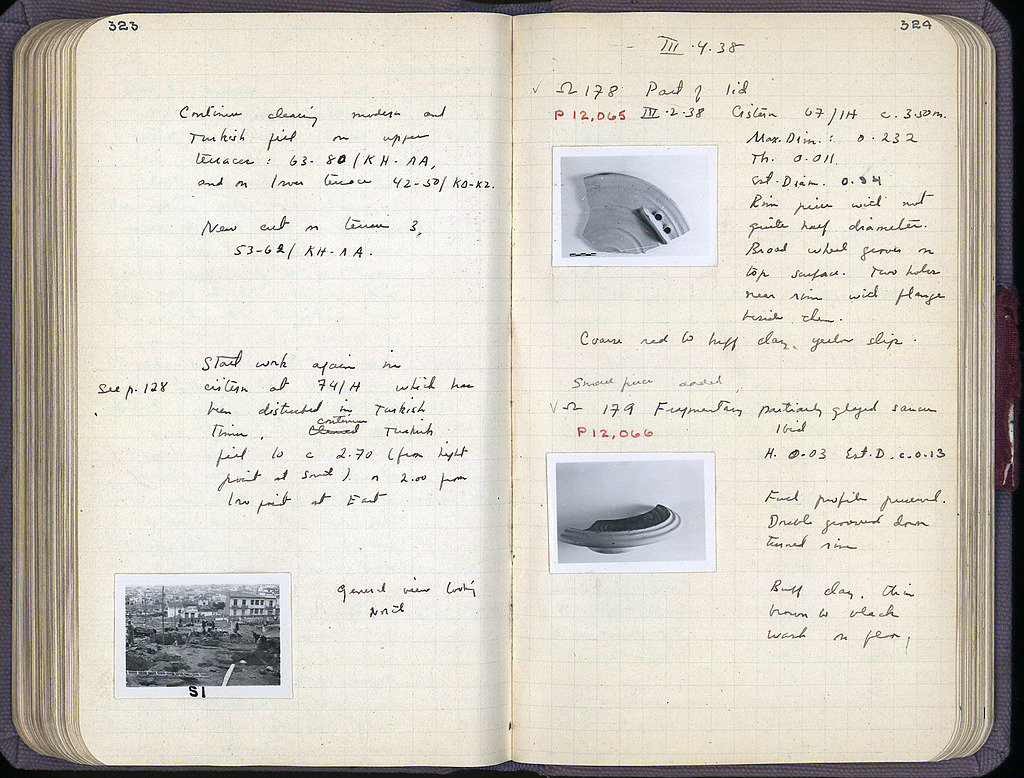 323
Continue clearing modern and
Turkish fill on upper
terraces : 63-80/KH-ΛΑ,
and on lower terrace 42-50/ΚΔ-ΚΖ.
New cut on terrace 3,
53-62/ΚΗ-ΛΑ.
Start work again in
See p. 128 cistern at 74/Η which has
been disturbed in Turkish
Times. Cleared continue Turkish
fill to c 2.70 (from high
point at South) or 2.00 from
low point at East
General view looking
North
51
324
III.4.38
√ Ω 178 Part of lid
P 12,065 III.2.38 Cistern 67/ΙΗ c. 3.50m.
Max. Dim.: 0.232
Th. 0.011
Est. Diam. 0.34
Rim piece with not
quite half diameter.
Broad wheel grooves on
top surface. Two holes
near rim with flange
beside them.
Coarse red to buff clay, yellow slip.
Small piece added,
√ Ω 179 Fragmentary partially glazed saucer
P 12,066 Ibid
H. 0.03 Est. D. c. 0.13
Full profile preserved.
Double grooved down
turned rim
Buff clay, thin
brown to black
wash on floor,